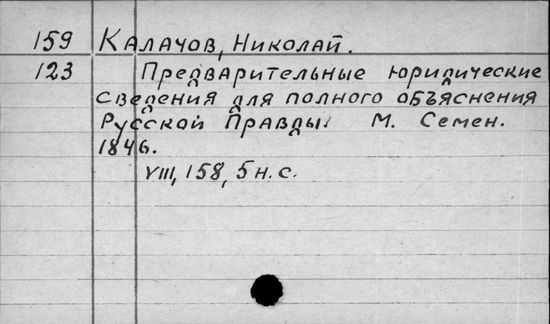 159 Калачов, Николай.
123 Предварительные юридические
сведения для полного объяснения
Русской Правды. М. Семен.
1846.
VIII, 158, 5 н. с.